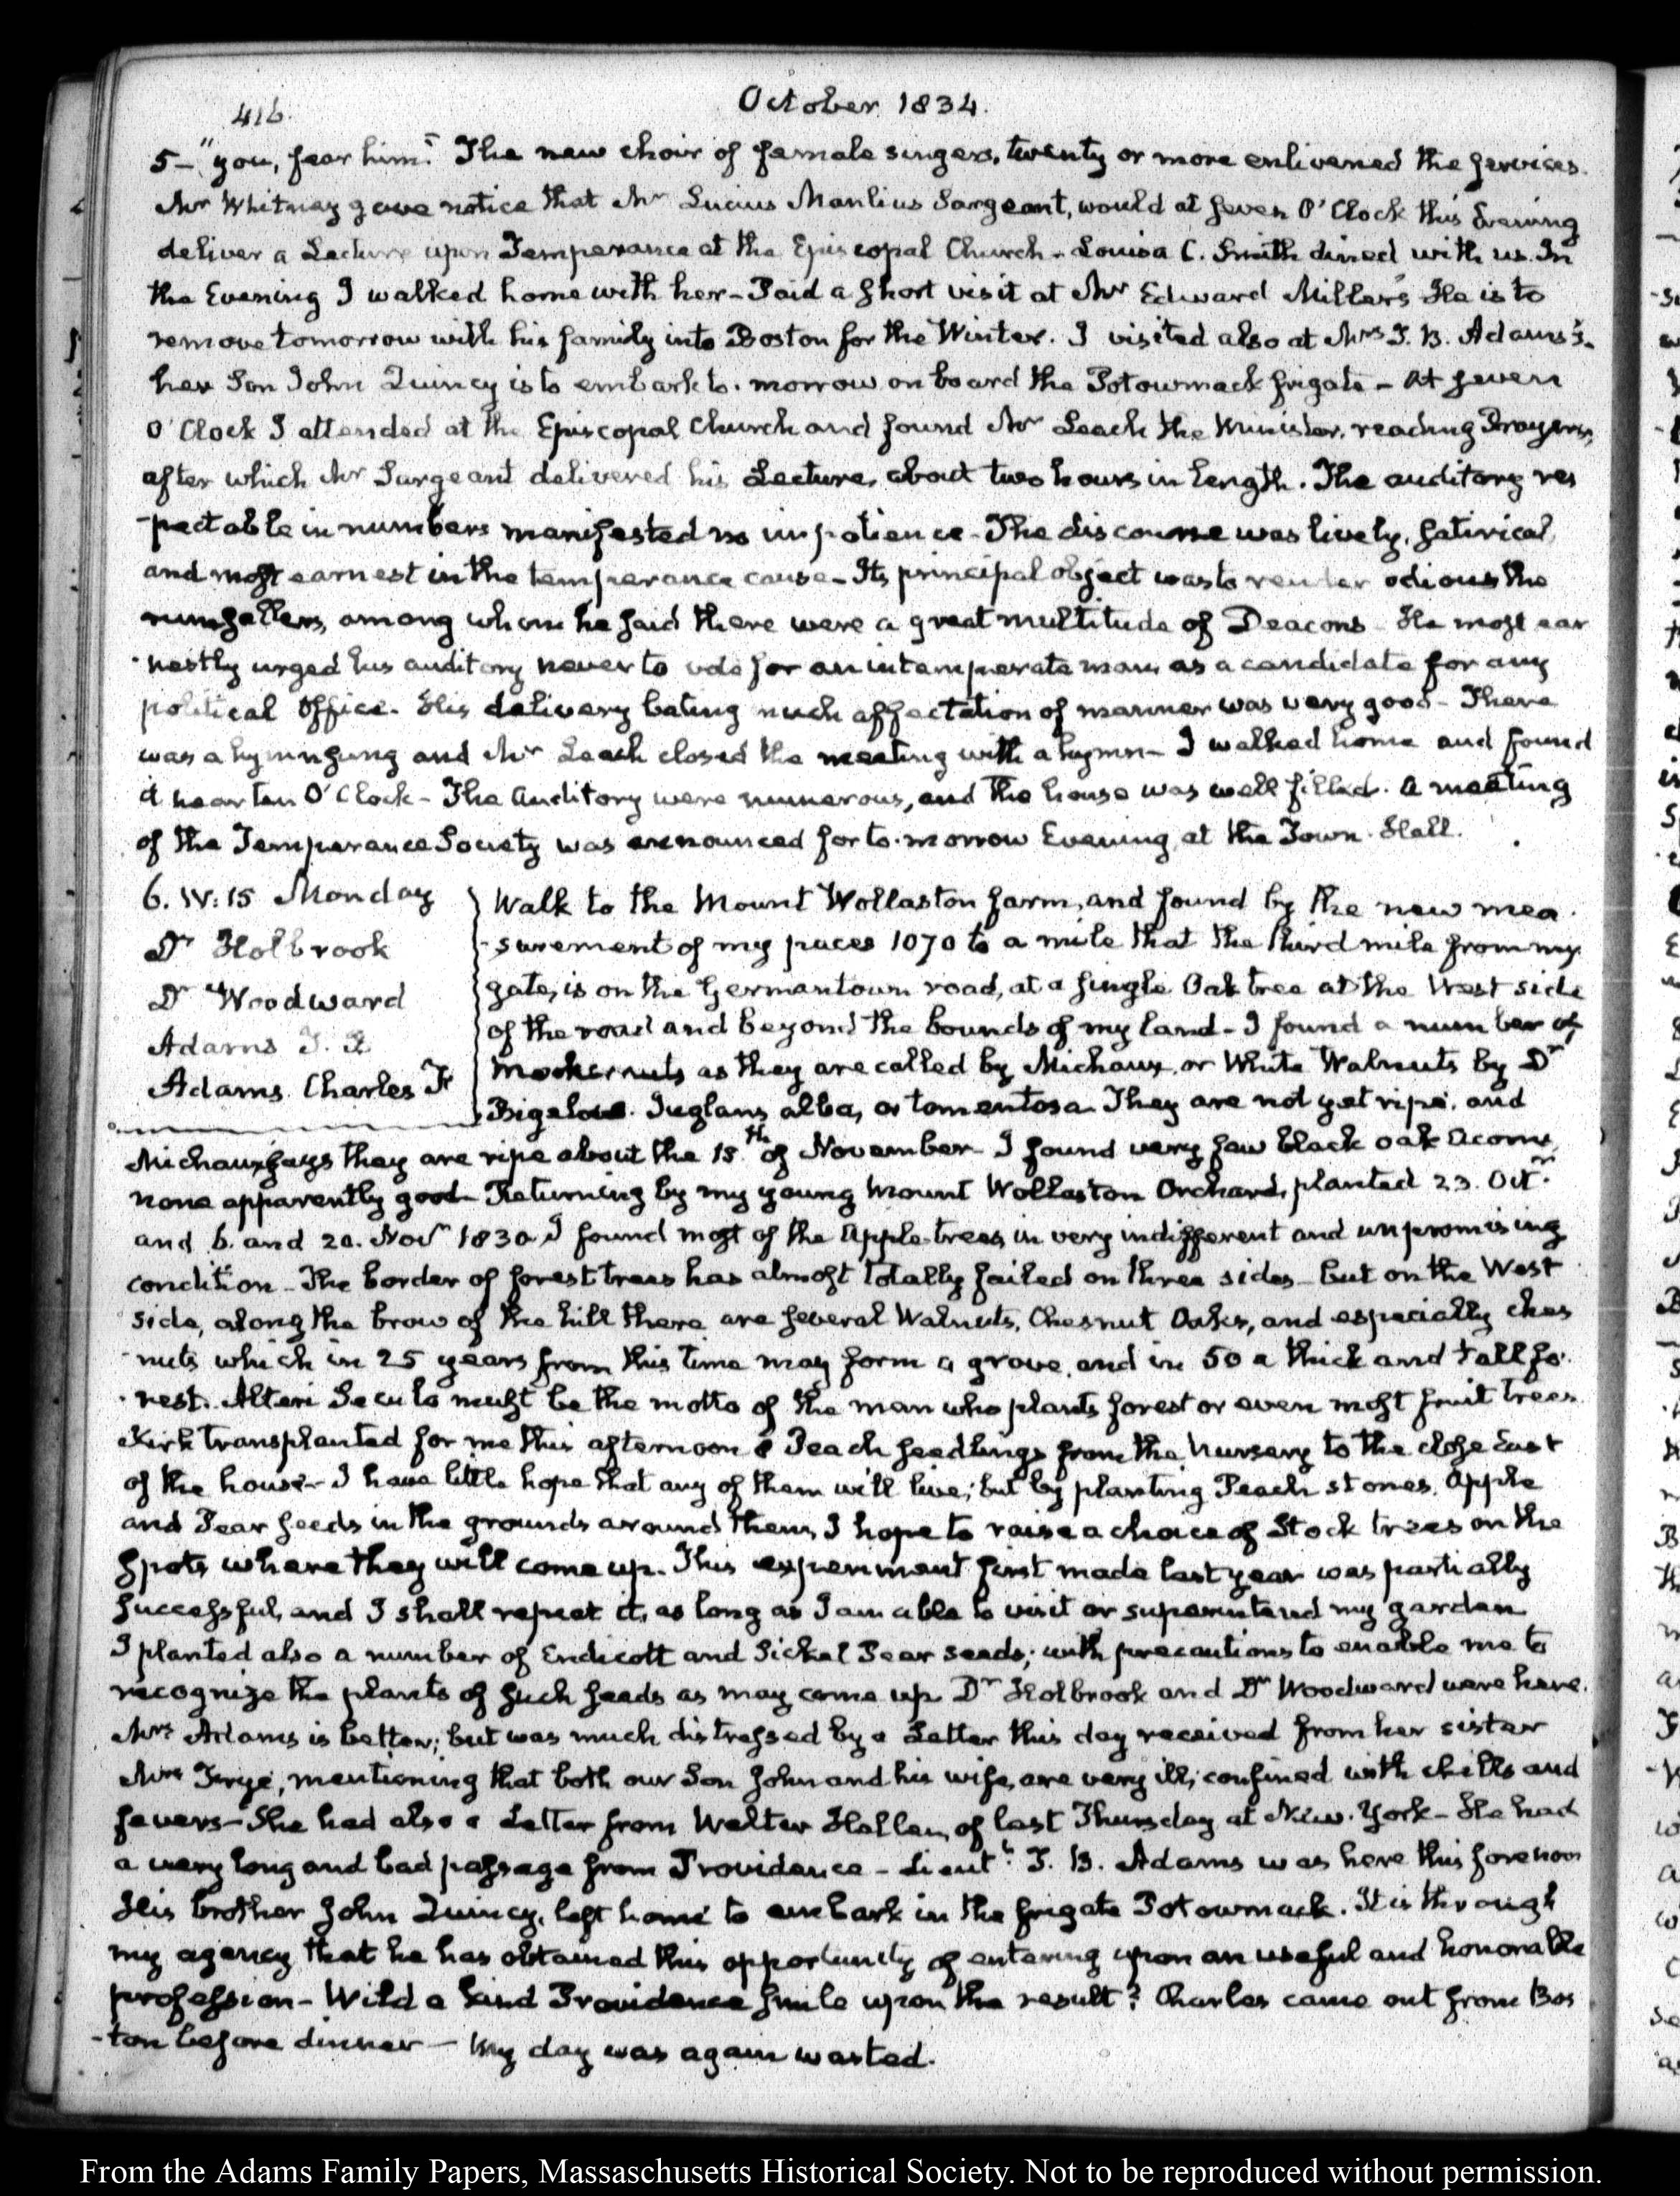 416.
October 1834.
5- "you, fear him." The new choir of female singers, twenty or more enlivened the services.
Mr Whitney gave notice that Mr Lucius Manlius Sargeant, would at seven O'Clock this Evening
deliver a Lecture upon Temperance at the Episcopal Church - Louisa C. Smith dined with us. In
the Evening I walked home with her - Paid a short visit at Mr Edward Miller's He is to
remove tomorrow with his family into Boston for the Winter. I visited also at Mrs T. B. Adams's.
her Son John Quincy is to embark to-morrow on board the Potowmack frigate - At seven
O'Clock I attended at the Episcopal Church and found Mr Leach the Minister, reading Prayers,
after which Mr Sargeant delivered his Lecture, about two hours in length. The auditory res
-pectable in numbers manifested no impatience - The discourse was lively, satirical,
and most earnest in the temperance cause - Its principal object was to render odious the
rumsellers, among whom he said there were a great multitude of Deacons - He most ear
-nestly urged his auditory never to vote for an intemperate man, as a candidate for any
political Office. His delivery bating much affectation of manner was very good - There
was a hymn sung and Mr Leach closed the meeting with a hymn - I walked home and found
it near ten O'Clock - The Auditory were numerous, and the house was well filled. A meeting
of the Temperance Society was announced for to-morrow Evening, at the Town-Hall.
6. IV:15 Monday
Dr Holbrook
Dr Woodward
Adams T. B.
Adams. Charles F.
Walk to the Mount Wollaston farm, and found by the new mea
-surement of my paces 1070 to a mile that the third mile from my
gate, is on the Germantown road, at a single Oak tree at the West side
of the road and beyond the bounds of my land - I found a number of
Mockernuts as they are called by Michaux, or White Walnuts by Dr
Bigelow. Juglans alba, or tomentosa. They are not yet ripe, and
Michaux says they are ripe about the 15th of November - I found very few black oak acorns
none apparently good - Returning by my young Mount Wollaston Orchard, planted 23. Octr
and 6. and 20. Novr 1830 I found most of the Apple-trees in very indifferent and unpromising
condition - The border of forest trees has almost totally failed on three sides - but on the West
side, along the brow of the hill there are several Walnuts, Chesnut Oaks, and especially ches
-nuts which in 25 years from this time may form a grove, and in 50 a thick and tall fo
-rest. Alteri Seculo must be the motto of the man who plants forest or even most fruit trees.
Kirk transplanted for me this afternoon 8 Peach seedlings from the Nursery to the close East
of the house - I have little hope that any of them will live; but by planting Peach stones, Apple
and Pear seeds in the grounds around them, I hope to raise a choice of Stock trees on the
spots where they will come up. This experiment first made last year was partially
successful, and I shall repeat it, as long as I am able to visit or superintend my garden
I planted also a number of Endicott and Sickel Pear seeds; with precautions to enable me to
recognize the plants of such seeds as may come up Dr Holbrook and Dr Woodward were here.
Mrs Adams is better; but was much distressed by a Letter this day received from her sister
Mrs Frye, mentioning that both our Son John and his wife, are very ill; confined with chills and
fevers - She had also a Letter from Walter Hellen, of last Thursday at New-York - He had
a very long and bad passage from Providence - Lieutt T. B. Adams was here this forenoon
His brother John Quincy, left home to embark in the frigate Potowmack. It is through
my agency that he has obtained this opportunity of entering upon an useful and honorable
profession - Will a kind Providence smile upon the result? Charles came out from Bos
-ton before dinner - My day was again wasted.
From the Adams Family Papers, Massachusetts Historical Society. Not to be reproduced without permission.